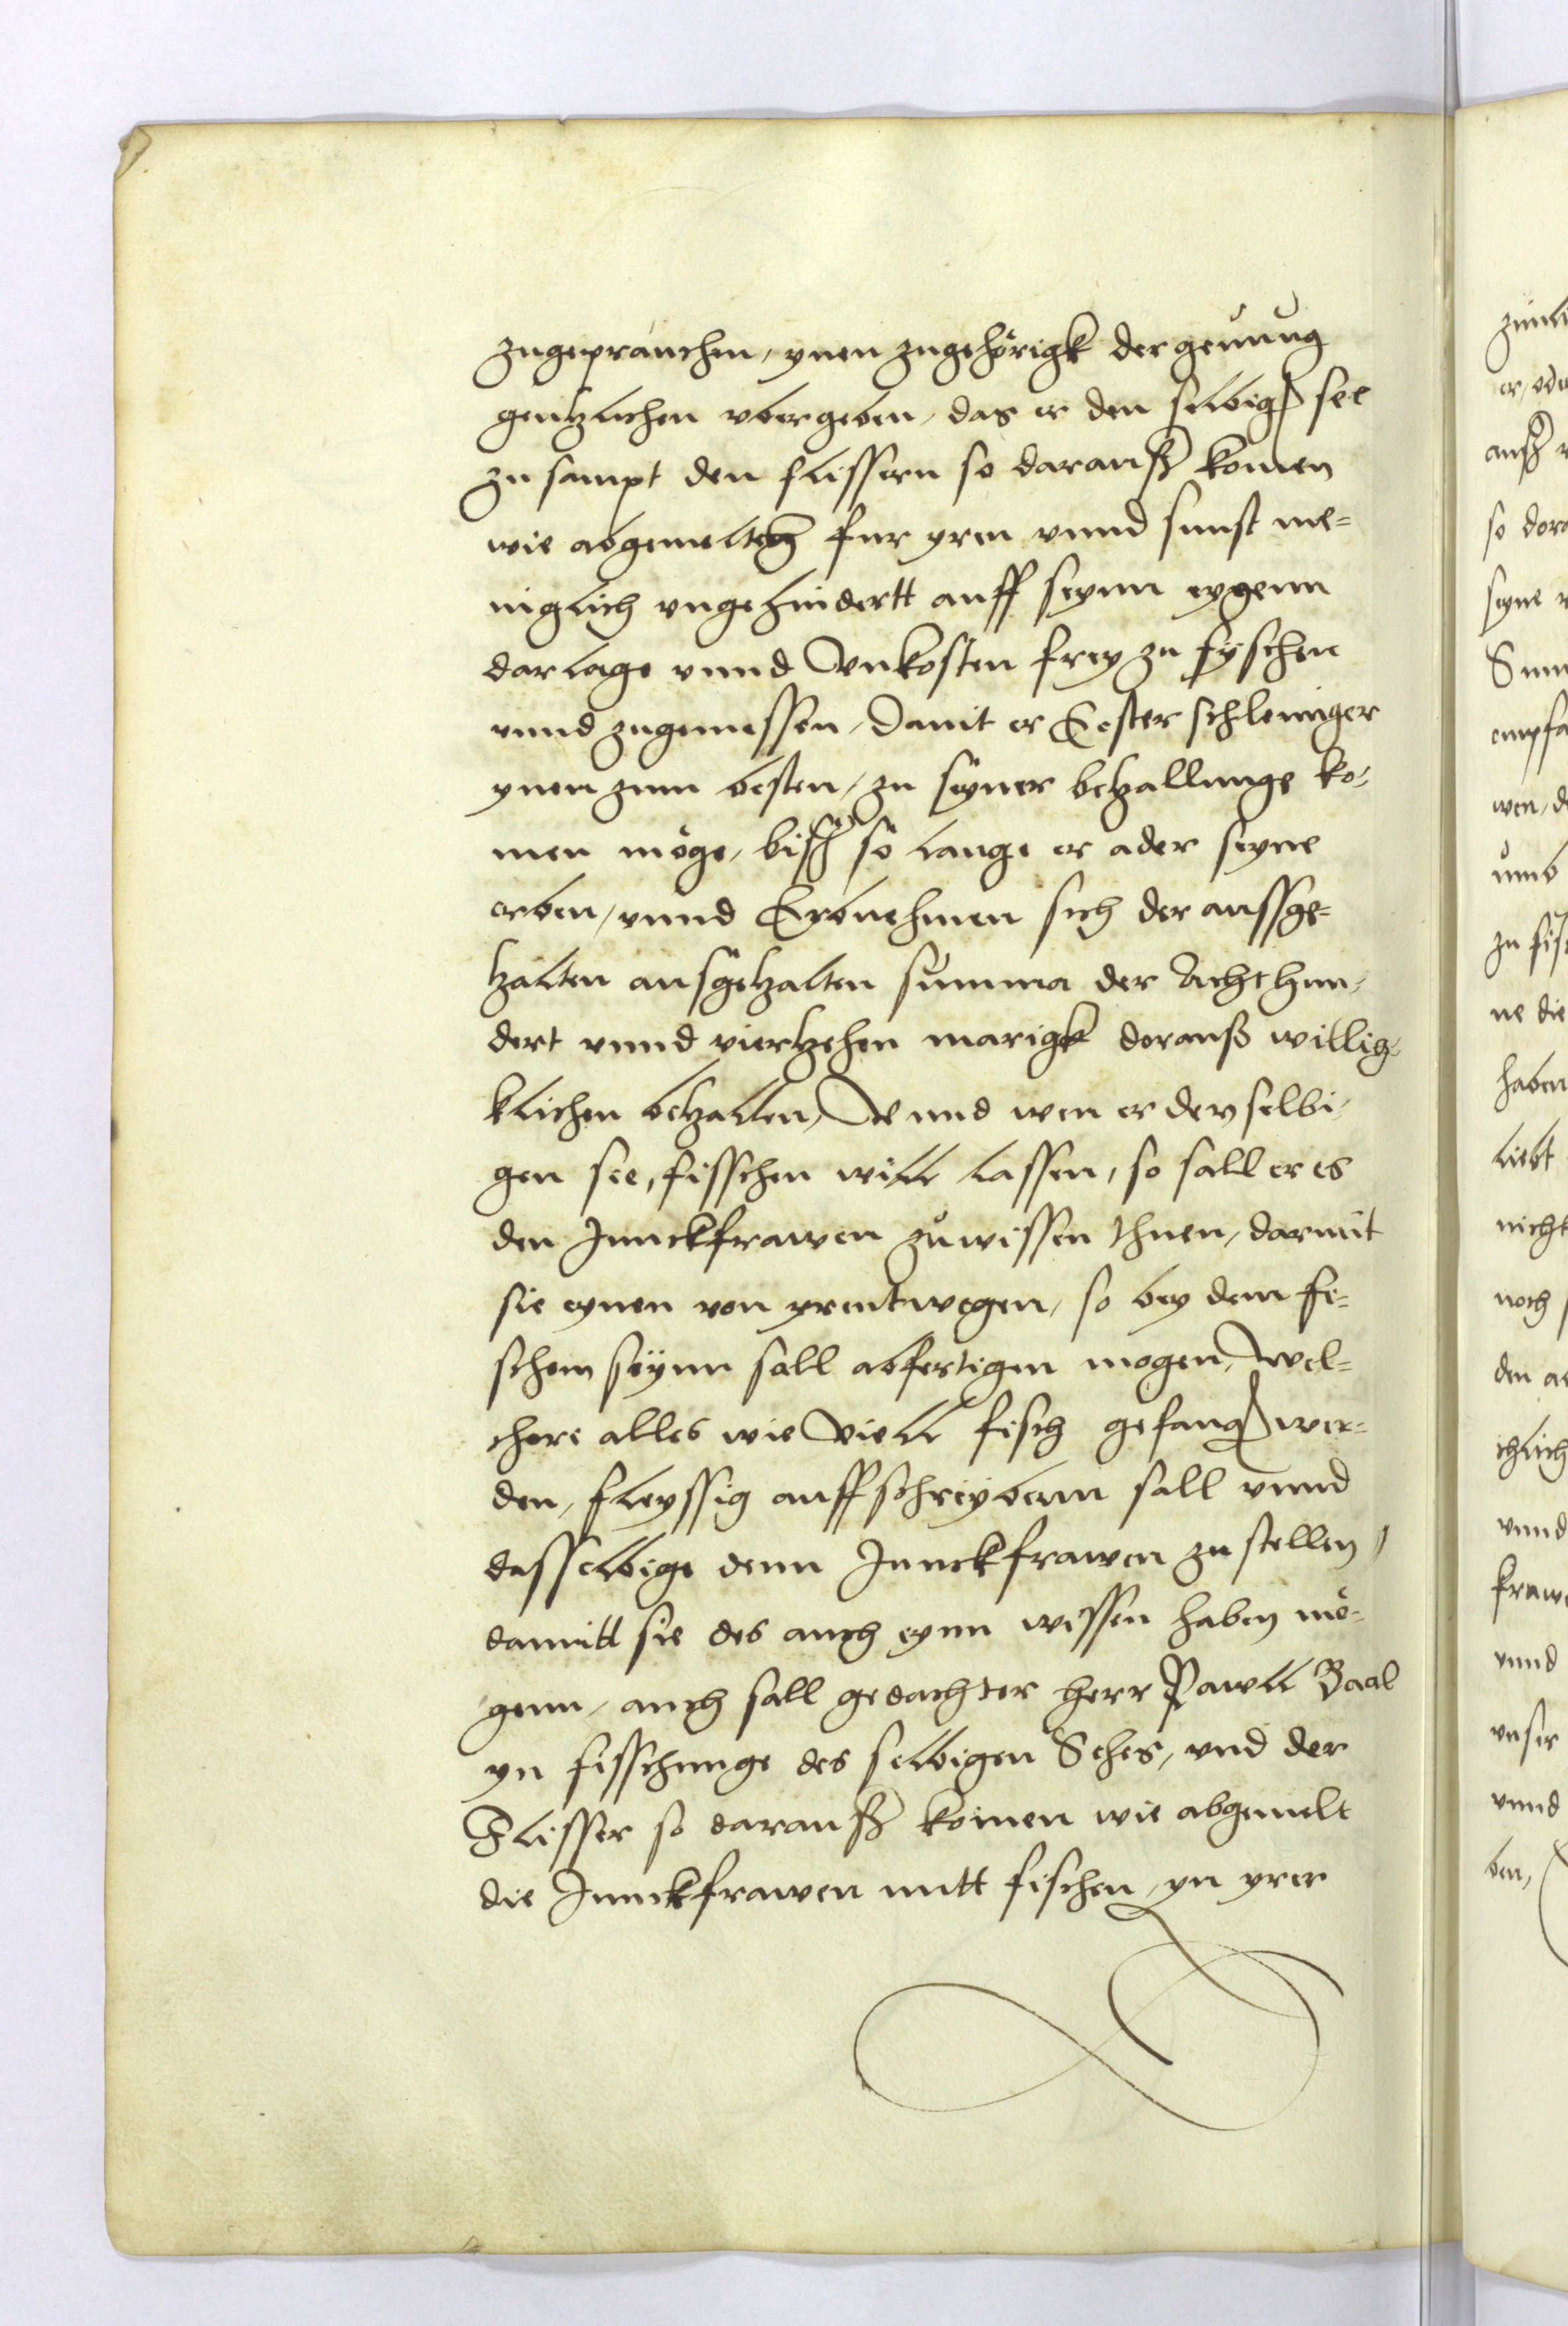 zugeprauchen, ynen zugehörigk der genúng
gentzlichen vbergeben, das er den selbig see
zu sampt den flissern so darauß komen
wie abgemelten fur yren vnnd sunst me-
niglich vngehindertt auff seynn eygenn
darlage vnnd Vnkosten frey zu fyschen
vnnd zugenissen, damit er dester schleuniger
ynen zum besten, zu seyner betzallunge ko-
men möge, biß so lange er ader seyne
erben, vnnd Erbnehmen sich der aussge-
tzalten ausgetzalten summa der Achthun-
dert vnnd viertzehen margk dorauß willig-
klichen betzallen, Vnnd wen er denselbi-
gen see, fisschen will lassen, so sall er es
den Junckfrawen zu wissen thuen, darmit
sie eynen von yrentwegen, so bey dem fi-
schem seynn sall abfertigen mogen, wel-
chere alles wie viell fisch gefang wer-
den, fleyssig auffschreybenn sall vnnd
dasselbige denn Junckfrawen zustellen,
damitt sie des auch eynn wissen haben mö-
genn, auch sall gedachter herr Pawll Baal
yn fisschunge des selbigen Sehes, vnd der
Flisser so darauß komen wie abgemelt
die Junckfrawen mitt fischen, yn yrer
zúml
er, ode
auß
so dor
seyne
Sum
empfa
wen, d
umb
zu fis
ne die
haben
liebt
nicht
noch
den
ichlich
vnnd
fraw
vnnd
vnser
vnnd
ben,